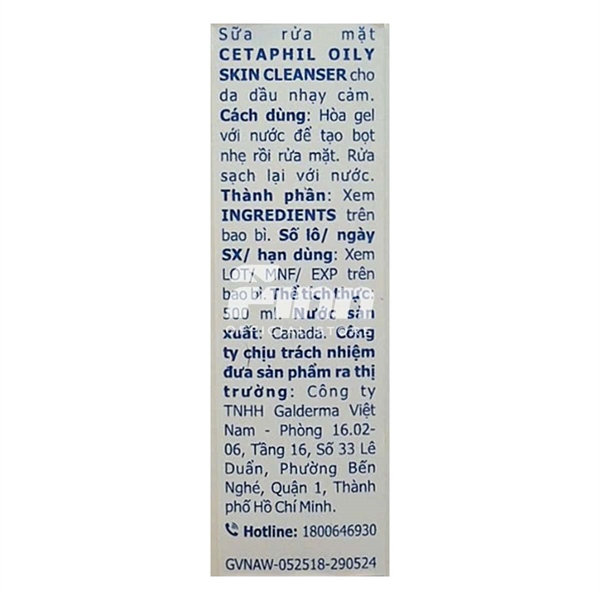 Sữa rửa mặt
CETAPHIL OILY
SKIN CLEANSER cho
da dầu nhạy cảm.
Cách dùng: Hòa gel
với nước để tạo bọt
nhẹ rồi rửa mặt. Rửa
sạch lại với nước.
Thành phần: Xem
INGREDIENTS trên
bao bì. Số lô/ ngày
SX/ hạn dùng: Xem
LOT/ MNF/ EXP trên
bao bì. Thể tích thực:
500 ml. Nước sản
OFFICIAL STORE
xuất: Canada. Công
ty chịu trách nhiệm
đưa sản phẩm ra thị
trường: Công ty
TNHH Galderma Việt
Nam - Phòng 16.02-
06, Tầng 16, Số 33 Lê
Duẩn, Phường Bến
Nghé, Quận 1, Thành
phố Hồ Chí Minh.
Hotline: 1800646930
GVNAW-052518-290524